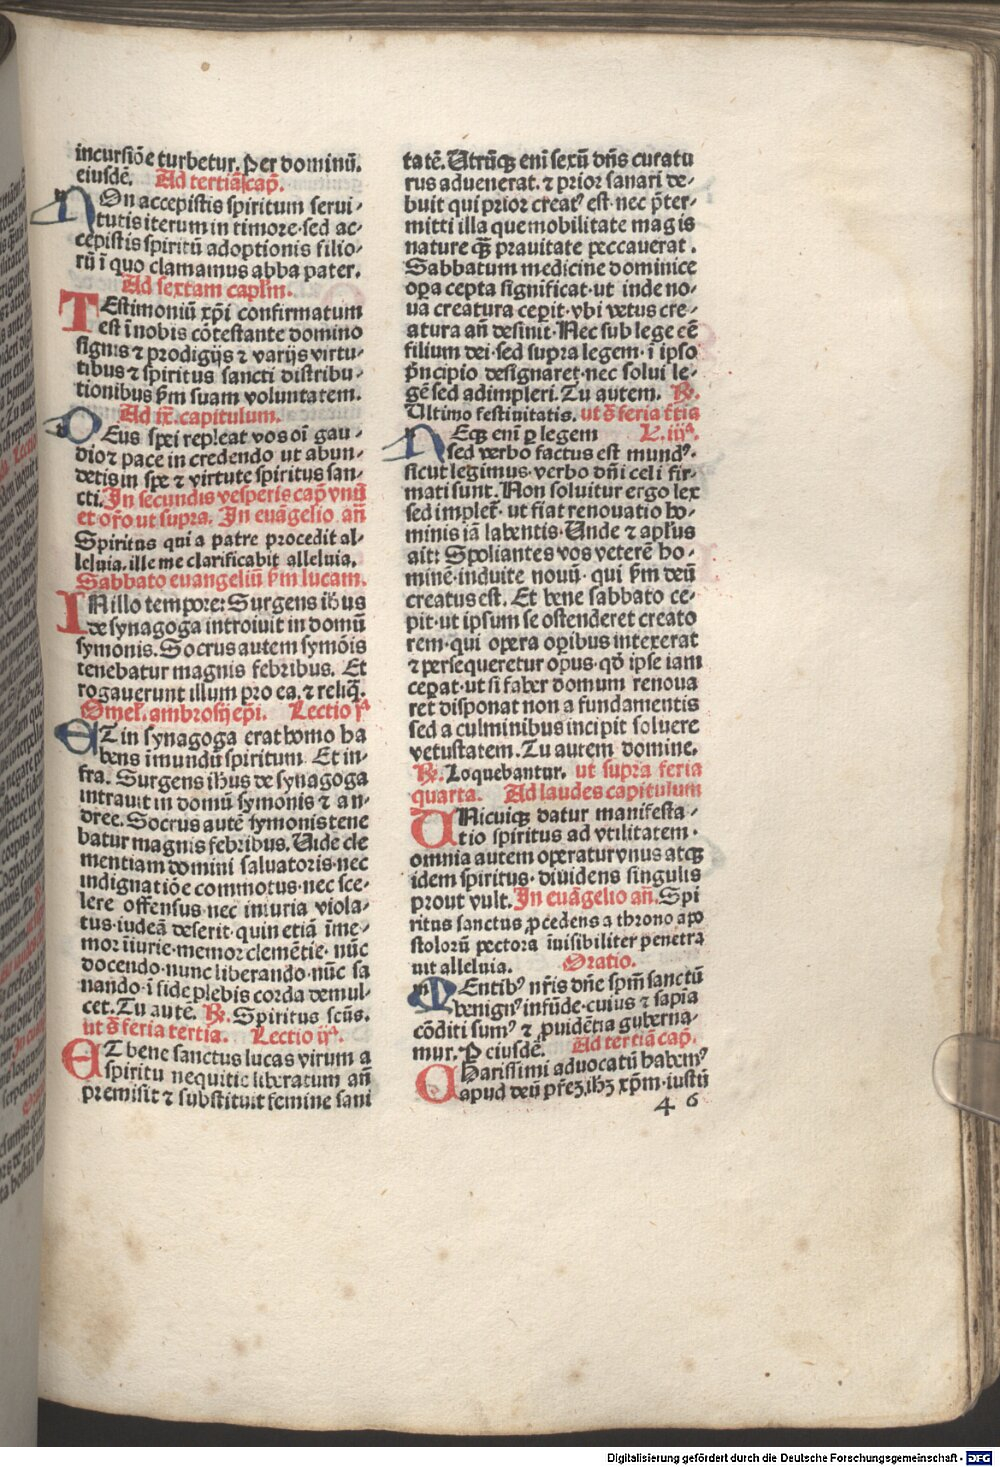 incursiōe turbetur. Per dominū.
eiusdē. Ad tertiā cap̄.
NOn accepistis spiritum serui-
tutis iterum in timore· sed ac-
cepistis spiritū adoptionis filio-
rū ī quo clamamus abba pater.
Ad sextam capl̄m.
TEstimoniū xp̄i confirmatum
est ī nobis cōtestante domino
signis ⁊ prodigijs ⁊ varijs virtu-
tibus ⁊ spiritus sancti distribu-
tionibus s̄m suam voluntatem.
Ad ix. capitulum.
DEus spei repleat vos oī gau-
dio ⁊ pace in credendo ut abun-
detis in spe ⁊ virtute spiritus san-
cti. In secundis vesperis cap̄ vnū
et or̄o ut supra. In euāgelio an̄
Spiritus qui a patre procedit al-
leluia. ille me clarificabit alleluia.
Sabbato euangeliū s̄m lucam.
IN illo tempore: Surgens ih̄us
de synagoga introiuit in domū
symonis. Socrus autem symōis
tenebatur magnis febribus. Et
rogauerunt illum pro ea. ⁊ reliq̄.
Omel. ambrosij ep̄i. Lectio jª
ET in synagoga erat homo ha
bens īmundū spiritum. Et in-
fra. Surgens ih̄us de synagoga
intrauit in domū symonis ⁊ an-
dree. Socrus autē symonis tene
batur magnis febribus. Uide cle
mentiam domini saluatoris· nec
indignatiōe commotus· nec sce-
lere offensus nec iniuria viola-
tus· iudeā deserit· quin etiā īme-
mor īiurie· memor clemētie· nūc
docendo· nunc liberando· nūc sa
nando· ī side plebis corda demul-
cet. Tu autē. R̄. Spiritus scūs.
ut s̄ feria tertia. Lectio ijª.
ET bene sanctus lucas virum a
spiritu nequitie liberatum an̄
premisit ⁊ substituit femine sani
tatē. Utrūqꝫ eni sexū dn̄s curatu
rus aduenerat. ⁊ prior sanari de-
buit qui prior creatꝰ est· nec p̄ter-
mitti illa que mobilitate magis
nature qꝫ prauitate peccauerat.
Sabbatum medicine dominice
opa cepta significat· ut inde no-
ua creatura ceperit· vbi vetus cre-
atura an̄ desinit· Nec sub lege eē
filium dei· sed supra legem· ī ipso
p̄ncipio designaret· nec solui le-
gē sed adimpleri. Tu autem. R̄.
Ultimo festiuitatis. ut s̄ feria t̄tia
NEqꝫ eni ꝑ legem L. iijª.
sed verbo factus est mundꝰ·
sicut legimus· verbo dn̄i celi fir-
mati sunt. Non soluitur ergo lex
sed implet̄· ut fiat renouatio ho-
minis iā labentis· Unde ⁊ apl̄us
ait: Spoliantes vos veterē ho-
minē· induite nouū· qui s̄m deū
creatus est. Et bene sabbato ce-
pit· ut ipsum se ostenderet creato
rem· qui opera opibus intexerat
⁊ persequeretur opus· qd̄ ipse iam
ceperat· ut si faber domum renoua
ret disponat non a fundamentis
sed a culminibus incipit soluere
vetustatem. Tu autem domine.
R̄. Loquebantur. ut supra feria
quarta. Ad laudes capitulum
UNicuiqꝫ datur manifesta-
tio spiritus ad vtilitatem·
omnia autem operatur vnus atqꝫ
idem spiritus· diuidens singulis
prout vult. In euāgelio an̄. Spi
ritus sanctus ꝓcedens a throno apo
stolorū pectora īuisibiliter penetra
uit alleluia. Oratio.
MEntibꝰ nr̄is dn̄e sp̄m sanctū
benignꝰ infūde· cuius ⁊ sapia
cōditi sumꝰ ⁊ ꝓuidētia guberna-
mur. P̲ eiusdē. Ad tertiā cap̄.
CHarissimi aduocatū habemꝰ
apud deū p̄rēꝫ ih̄ꝫ xp̄m· iustū
46
Digitalisierung gefördert durch die Deutsche Forschungsgemeinschaft - DFG